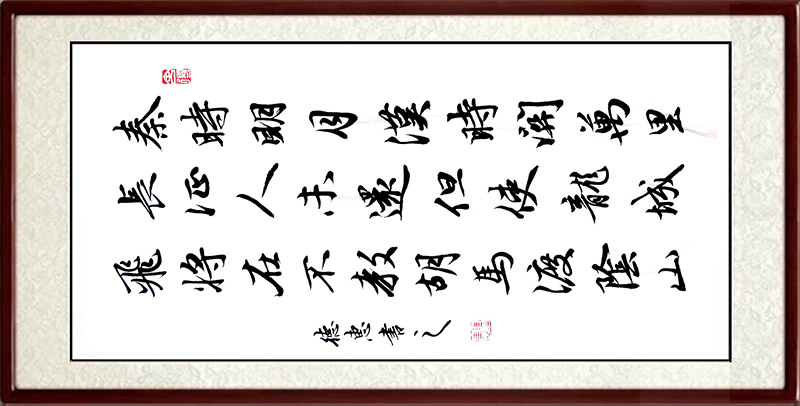 秦時明月漢時關萬里
長征人未還但使龍城
飛將在不教胡馬渡陰山
德惠書之